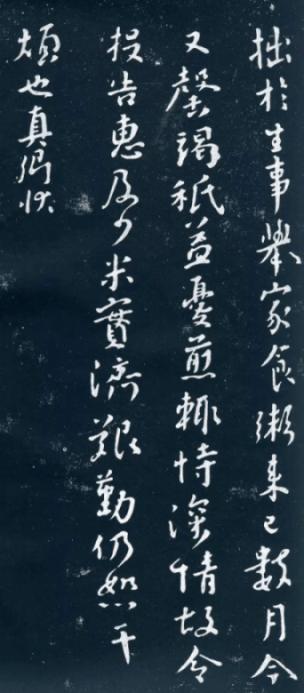 拙於生事舉家食粥來已數月今
又罄竭秖益憂煎輙恃深情故令
投告惠及少米實濟艱勤仍恕干
煩也真卿狀